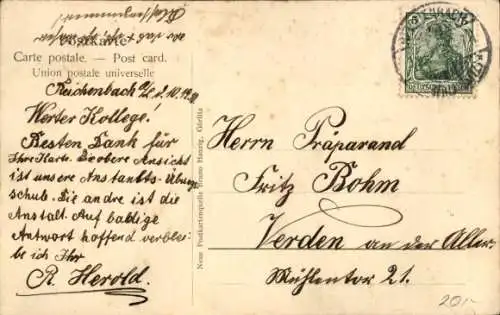 Postkarte
Carte postale. — Post card.
Union postale universelle
Reichenbach O/L d. 2.10.19
Werter Kollege!
Besten Dank für
Ihre Karte. Die obere Ansicht
ist unsere Anstalts-Übungs
schule. Die andre ist die
Anstalt. Auf baldige
Antwort hoffend verblei-
be ich Ihr
R. Herold.
Neue Postkartenquelle Bruno Hanzig, Görlitz
Herrn Präparand
Fritz Bohm
Verden an der Aller
Mühlentor 21.
20,-